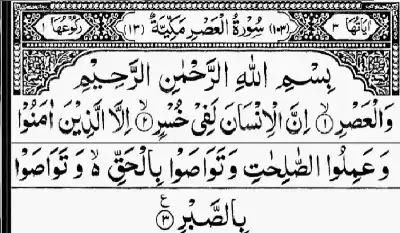 اٰيَاتُهَا ٣ (١٠٣) سُوْرَةُ الْعَصْرِ مَكِّيَّةٌ (١٣) رُكُوْعُهَا ١
بِسْمِ اللهِ الرَّحْمٰنِ الرَّحِيْمِ
وَالْعَصْرِ ۙ﴿١﴾ اِنَّ الْاِنْسَانَ لَفِيْ خُسْرٍ ۙ﴿٢﴾ اِلَّا الَّذِيْنَ اٰمَنُوْا
وَ عَمِلُوا الصّٰلِحٰتِ وَتَوَاصَوْا بِالْحَقِّ ۙ۬ وَ تَوَاصَوْا
بِالصَّبْرِ ﴿٣﴾ ع